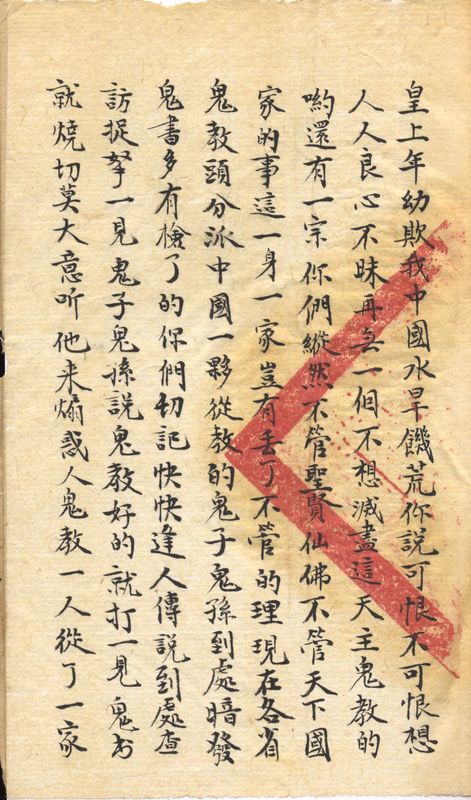 皇上年幼欺我中國水旱饑荒你說可恨不可恨想
人人良心不昧再無一個不想滅盡這天主鬼教的
喲還有一宗你們縱然不管聖賢仙佛不管天下國
家的事這一身一家豈有丢了不管的理現在各省
鬼教頭分派中國一夥從教的鬼子鬼孫到處暗發
鬼書多有撿了的你們切記快快逢人傳說到處查
訪捉拏一見鬼子鬼孫說鬼教好的就打一見鬼书
就燒切莫大意听他来煽惑人鬼教一人從了一家